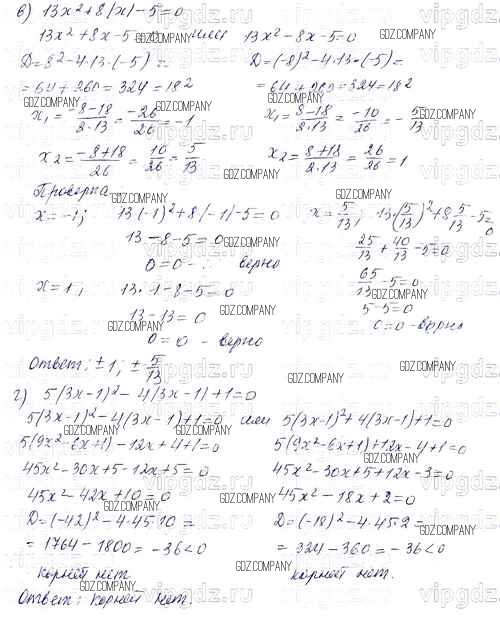 в) 13x²+8|x|-5=0
13x²+8x-5=0 или 13x²-8x-5=0
D=8²-4·13·(-5)= D=(-8)²-4·13·(-5)=
=64+260=324=18² =64+260=324=18²
x₁=(-8-18)/(2·13)=-26/26=-1 x₁=(8-18)/(2·13)=-10/26=-5/13
x₂=(-8+18)/26=10/26=5/13 x₂=(8+18)/(2·13)=26/26=1
Проверка
x=-1; 13(-1)²+8|-1|-5=0 x=5/13; 13·(5/13)²+8·5/13-5=0
13-8-5=0 25/13+40/13-5=0
0=0 - верно 65/13-5=0
x=1; 13·1-8-5=0 5-5=0
13-13=0 0=0 - верно
0=0 - верно
Ответ: ±1; ±5/13
г) 5(3x-1)²-4|3x-1|+1=0
5(3x-1)²-4(3x-1)+1=0 или 5(3x-1)²+4(3x-1)+1=0
5(9x²-6x+1)-12x+4+1=0 5(9x²-6x+1)+12x-4+1=0
45x²-30x+5-12x+5=0 45x²-30x+5+12x-3=0
45x²-42x+10=0 45x²-18x+2=0
D=(-42)²-4·45·10= D=(-18)²-4·45·2=
=1764-1800=-36<0 =324-360=-36<0
корней нет корней нет.
Ответ: корней нет.
GDZ.COMPANY
vipgdz.ru